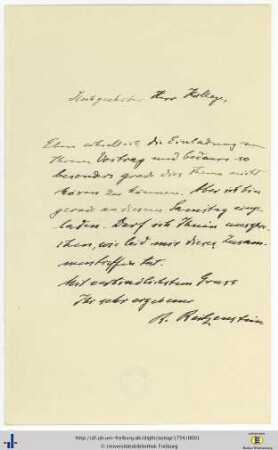 Hochgeehrter Herr Kollege,
Eben erhalte ich die Einladung zu
Ihrem Vortrag und bedaure so
besonders grade dies Thema nicht
hören zu können. Aber ich bin
gerade an diesem Samstag einge-
laden. Darf ich Ihnen ausspre-
chen, wie leid mir dieses Zusam-
mentreffen tut.
Mit verbindlichstem Gruss
Ihr sehr ergebener
R. Reitzenstein
http://dl.ub.uni-freiburg.de/diglit/autogr1704/0001
© Universitätsbibliothek Freiburg